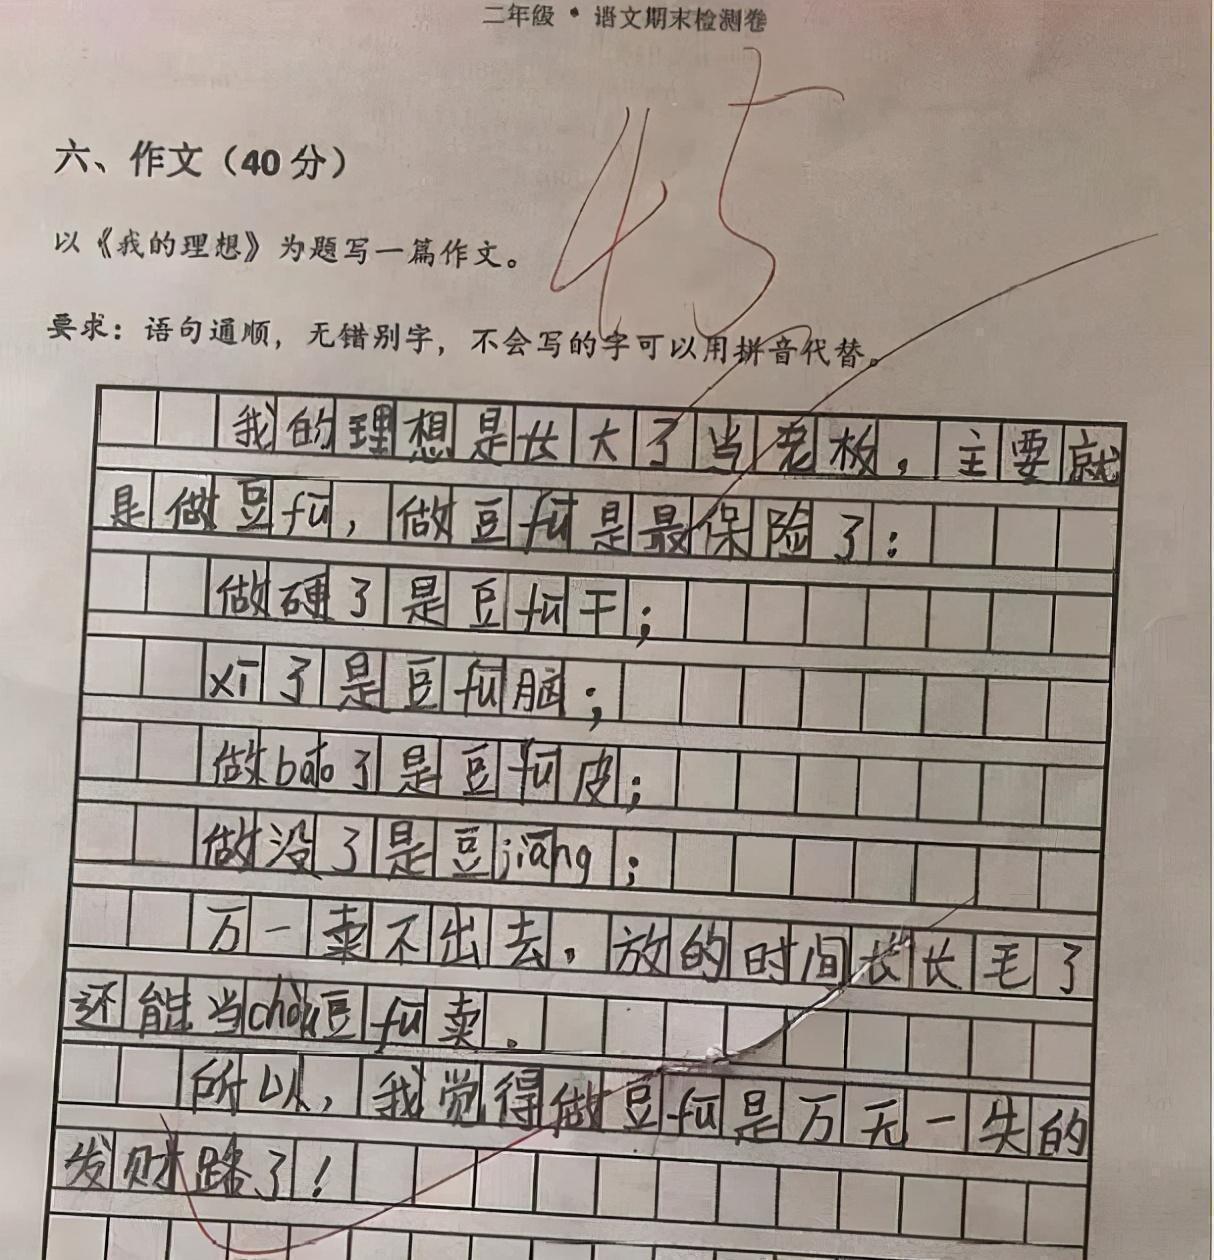 二年级·语文期末检测卷
45
六、作文（40 分）
以《我的理想》为题写一篇作文。
要求：语句通顺，无错别字，不会写的字可以用拼音代替。
我的理想是长大了当老板，主要就
是做豆fu，做豆fu是最保险了：
做硬了是豆fu干；
xī了是豆fu脑；
做báo了是豆fu皮；
做没了是豆jiāng；
万一卖不出去，放的时间长长毛了
还能当chòu豆fu卖。
所以，我觉得做豆fu是万无一失的
发财路了！